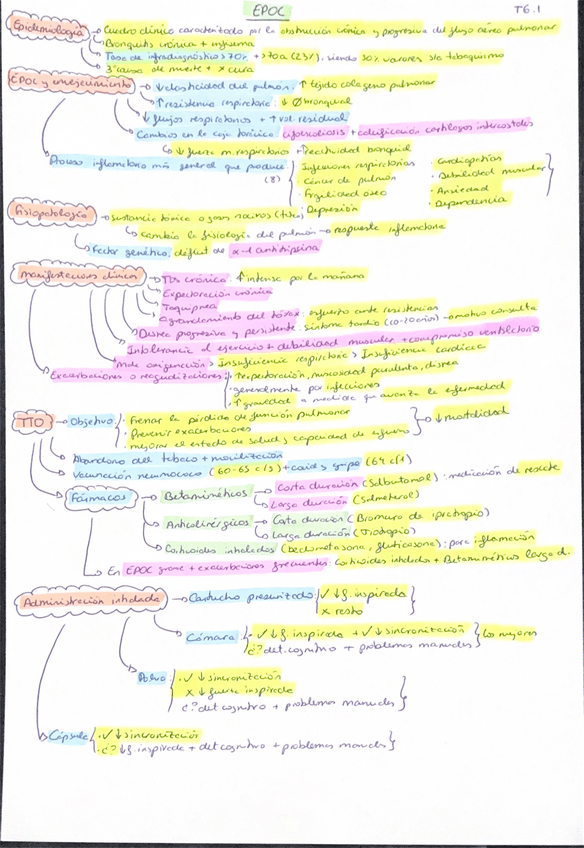 EPOC
T6.1
Epidemiología → Cuadro clínico caracterizado por la obstrucción crónica y progresiva del flujo aéreo pulmonar
Bronquitis crónica + enfisema
Tasa de infradiagnóstico >70% + >70a (23%), siendo 30% varones x/o tabaquismo
3ª causa de muerte +
EPOC y envejecimiento → ↓ elasticidad del pulmón: ↑ tejido colágeno pulmonar
↑ resistencia respiratoria: ↓ Ø bronquial
↓ flujos respiratorios + ↑ vol. residual
Cambios en la caja torácica: cifoescoliosis + calcificación cartílagos intercostales
↓ fuerza m. respiratorios + ↑ reactividad bronquial
Proceso inflamatorio más general que produce (8)
· Infecciones respiratorias
· Cáncer de pulmón
· Fragilidad ósea
· Depresión
· Cardiopatías
· Debilidad muscular
· Ansiedad
· Dependencia
Fisiopatología → sustancia tóxica o gases nocivos (tbco)
cambia la fisiología del pulmón → respuesta inflamatoria
Factor genético: déficit de α-1 antitripsina
Manifestaciones clínicas → Tos crónica. ↑ intensa por la mañana
Expectoración crónica
Taquipnea
Agrandamiento del tórax: esfuerzo ante resistencias
Disnea progresiva y persistente. síntoma tardío (10-20años) → motivo consulta
Intolerancia al ejercicio + debilidad muscular + compromiso ventilatorio
Mala oxigenación > Insuficiencia respiratoria > Insuficiencia cardíaca
Exacerbaciones o reagudizaciones: · ↑ expectoración, mucosidad purulenta, disnea
· generalmente por infecciones
· ↑ gravedad a medida que avanza la enfermedad
TTO → Objetivo · Frenar la pérdida de función pulmonar
· Prevenir exacerbaciones
· mejorar el estado de salud y capacidad de esfuerzo
→ ↓ mortalidad
Abandono del tabaco + movilización
Vacunación neumococo (60-65 c/5) + covid y gripe (64 c/1)
Fármacos → Betamiméticos → Corta duración (Salbutamol): medicación de rescate
Larga duración (Salmeterol)
Anticolinérgicos → Corta duración (Bromuro de ipratropio)
Larga duración (Tiotropio)
Corticoides inhalados (beclometasona, fluticasona): para inflamación
En EPOC grave + exacerbaciones frecuentes: Corticoides inhalados + Betamiméticos larga d.
Administración inhalada → Cartucho presurizado: ✓ ↓ f. inspirada
x resto
Cámara: · ✓ ↓ f. inspirada + ✓ ↓ sincronización
¿? det. cognitivo + problemas manuales
Los mejores
Polvo · ✓ ↓ sincronización
x ↓ fuerza inspirada
¿? det cognitivo + problemas manuales
Cápsula · ✓ ↓ sincronización
· ¿? ↓ f. inspirada + det cognitivo + problemas manuales